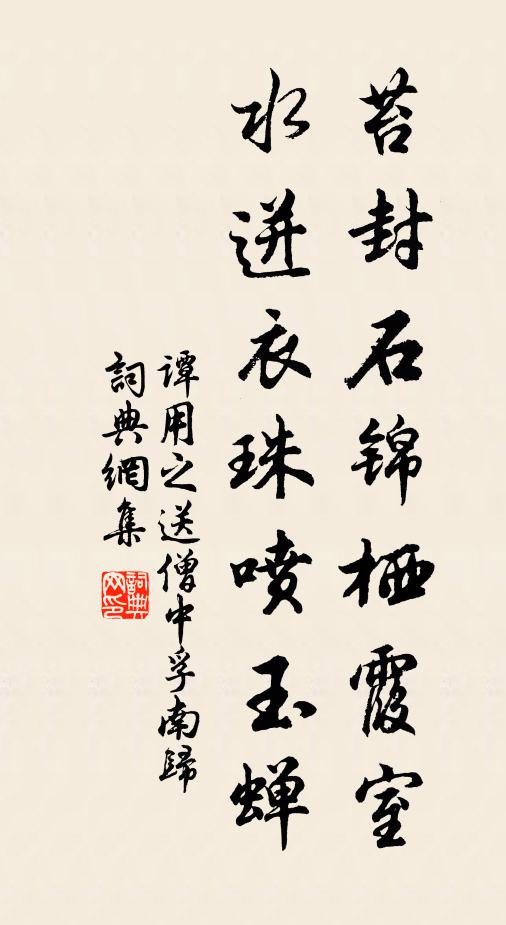 苔封石锦栖霞室
水迸衣珠喷玉蝉
谭用之送僧中孚南歸
詞典網集
詞典網印